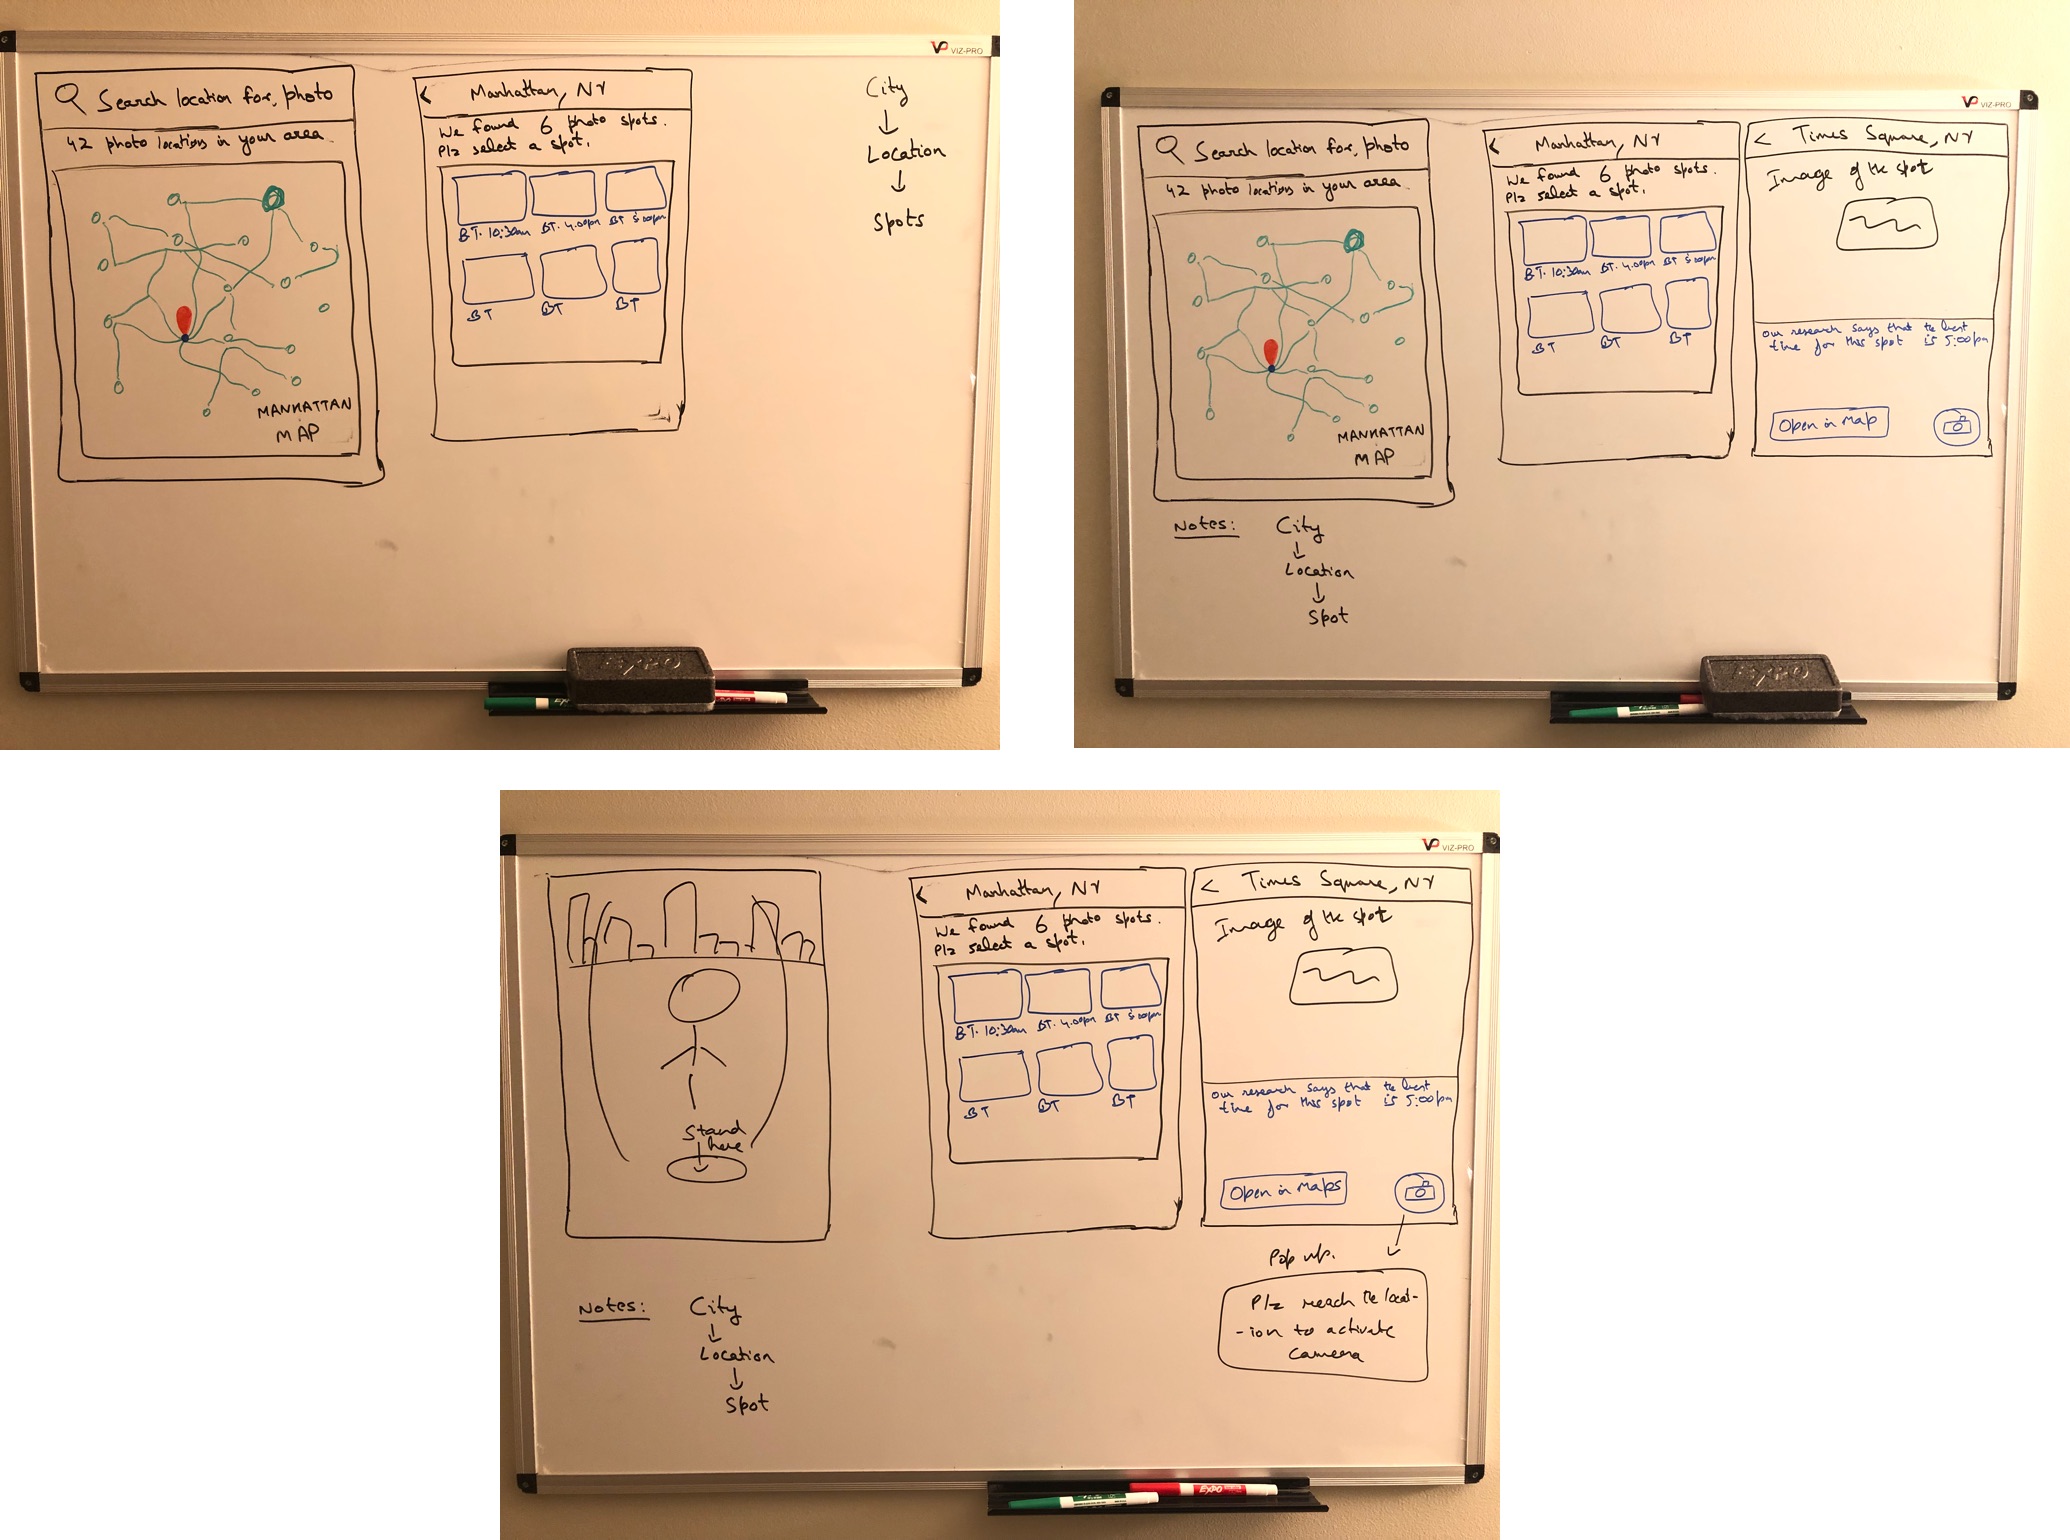 VIZ-PRO
Search location for, photo
42 photo locations in your area.
MANHATTAN
MAP
< Manhattan, NY
We found 6 photo spots.
Plz select a spot.
BT. 10:30am BT. 4.00pm BT 5:00pm
BT BT BT
City
↓
Location
↓
Spots
EXPO
EXPO
VIZ-PRO
Search location for, photo
42 photo locations in your area.
MANHATTAN
MAP
< Manhattan, NY
We found 6 photo spots.
Plz select a spot.
BT. 10:30am BT. 4.00pm BT 5:00pm
BT BT BT
< Times Square, NY
Image of the spot
Our research says that the best
time for this spot is 5:00pm
Open in Map
Notes: City
↓
Location
↓
Spot
EXPO
VIZ-PRO
Stand
here
< Manhattan, NY
We found 6 photo spots.
Plz select a spot.
BT. 10:30am BT. 4.00pm BT 5:00pm
BT BT BT
< Times Square, NY
Image of the spot
Our research says that the best
time for this spot is 5:00pm
Open in Maps
Pop up.
Plz reach the locat-
-ion to activate
camera
Notes: City
↓
Location
↓
Spot
EXPO